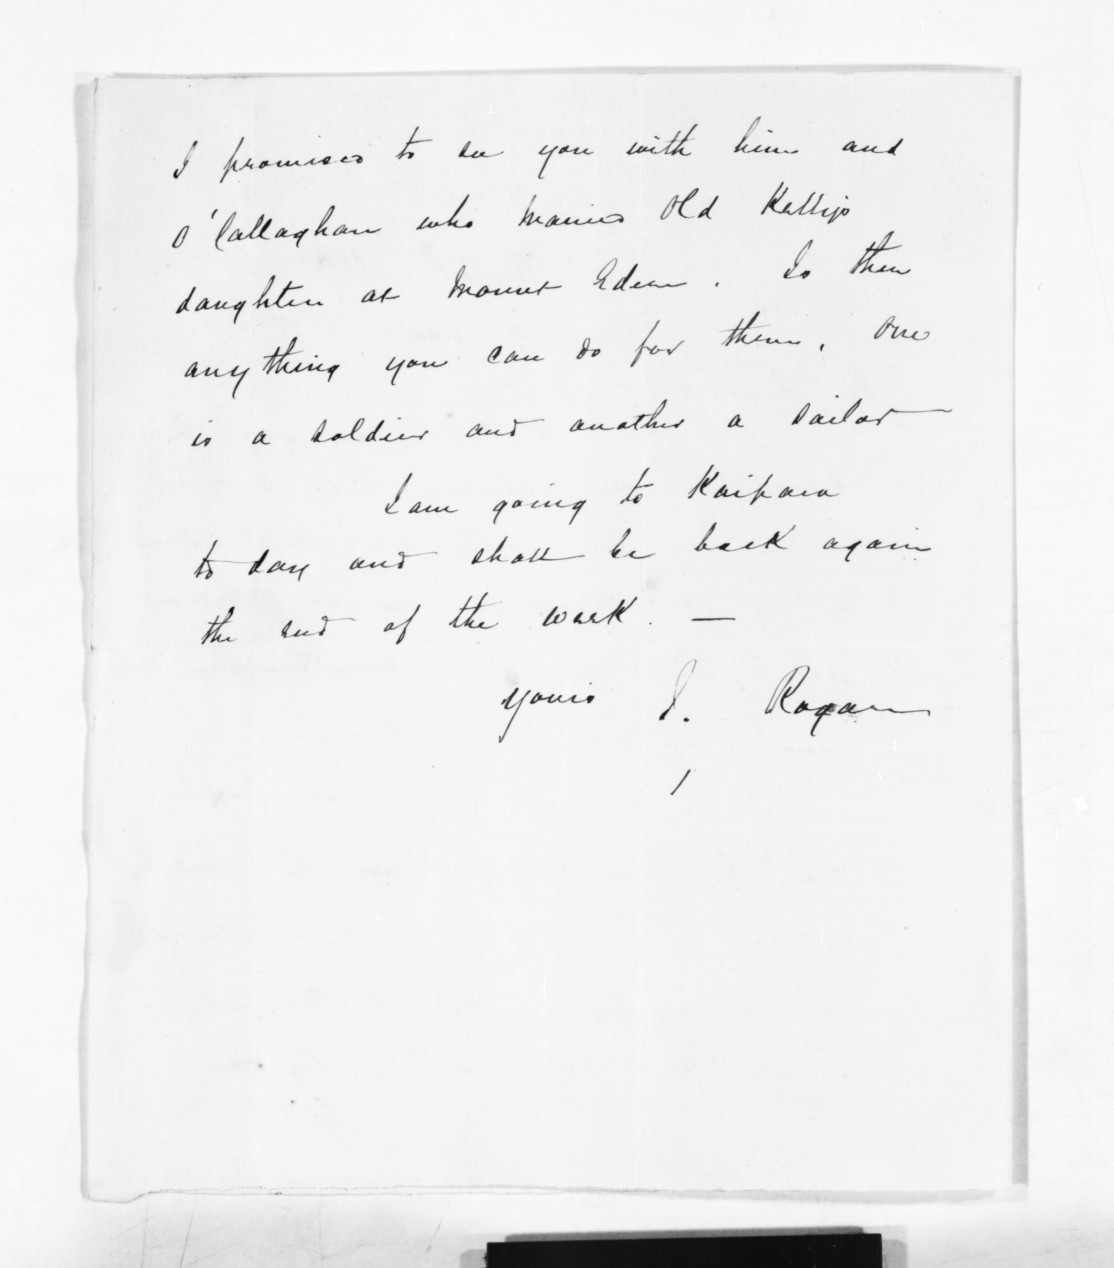 I promised to see you with him and
O'Callaghan who married Old
daughter at Mount Eden. Is there
anything you can do for them, One
is a soldier and another a sailor
I am going to Kaipara
to day and shall be back again
the end of the week. —
Yours J. Rogan